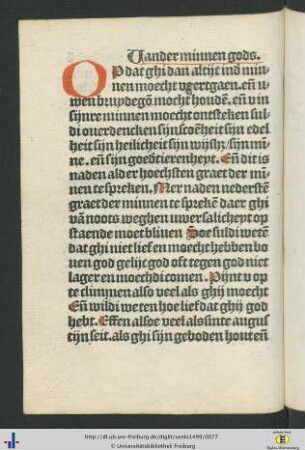 Uander minnen gods.
OP dat ghi dan altijt ind min
nen moecht vʒertgaen. en̄ u
wen bruydegō mocht houdē. en̄ v in
sijnre minnen moecht ontsteken sul
di ouerdencken sijn scoēheit sijn edel
heit sijn heilicheit sijn wijshʒ. sijn mī
ne. en̄ sijn goedtierenheyt. En̄ dit is
na den alder hoechsten graet der mī
nen te spreken. Mer na den nederstē
graet der minnen te sprekē daer ghi
vā noots weghen uwer salicheyt op
staende moet bliuen Soe suldi wetē
dat ghi niet lief en moecht hebben bo
uen god gelijc god oft tegen god niet
lager en moechdi comen. Pijnt v op
te climmen also veel als ghij moecht
En̄ wildi weten hoe lief dat ghij god
hebt. Effen alsoe veel als sinte augus
tijn seit. als ghi sijn geboden hout en̄
http://dl.ub.uni-freiburg.de/diglit/senlis1499/0077
© Universitätsbibliothek Freiburg
Baden-Württemberg